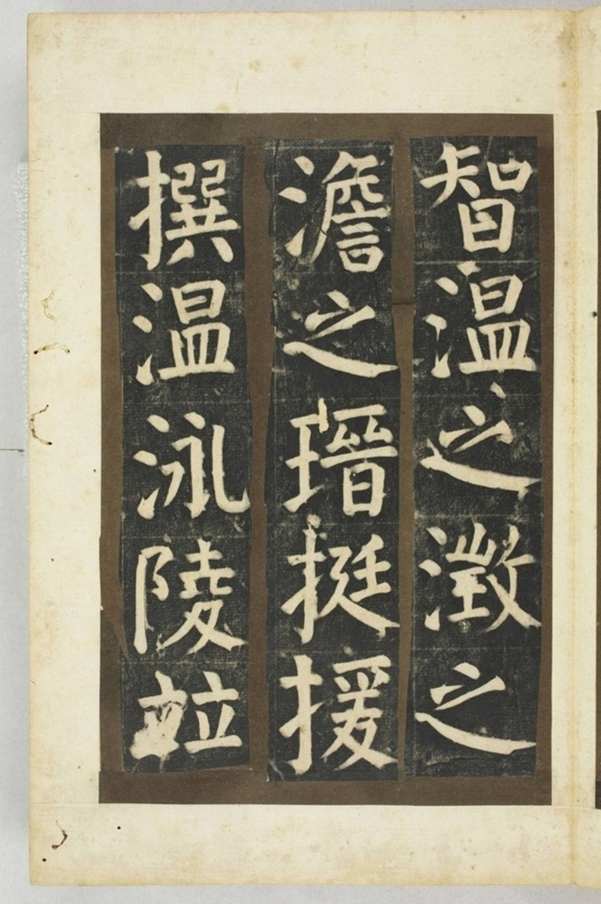 智温之澂之
澹之瑨挺援
撰温泳陵竝